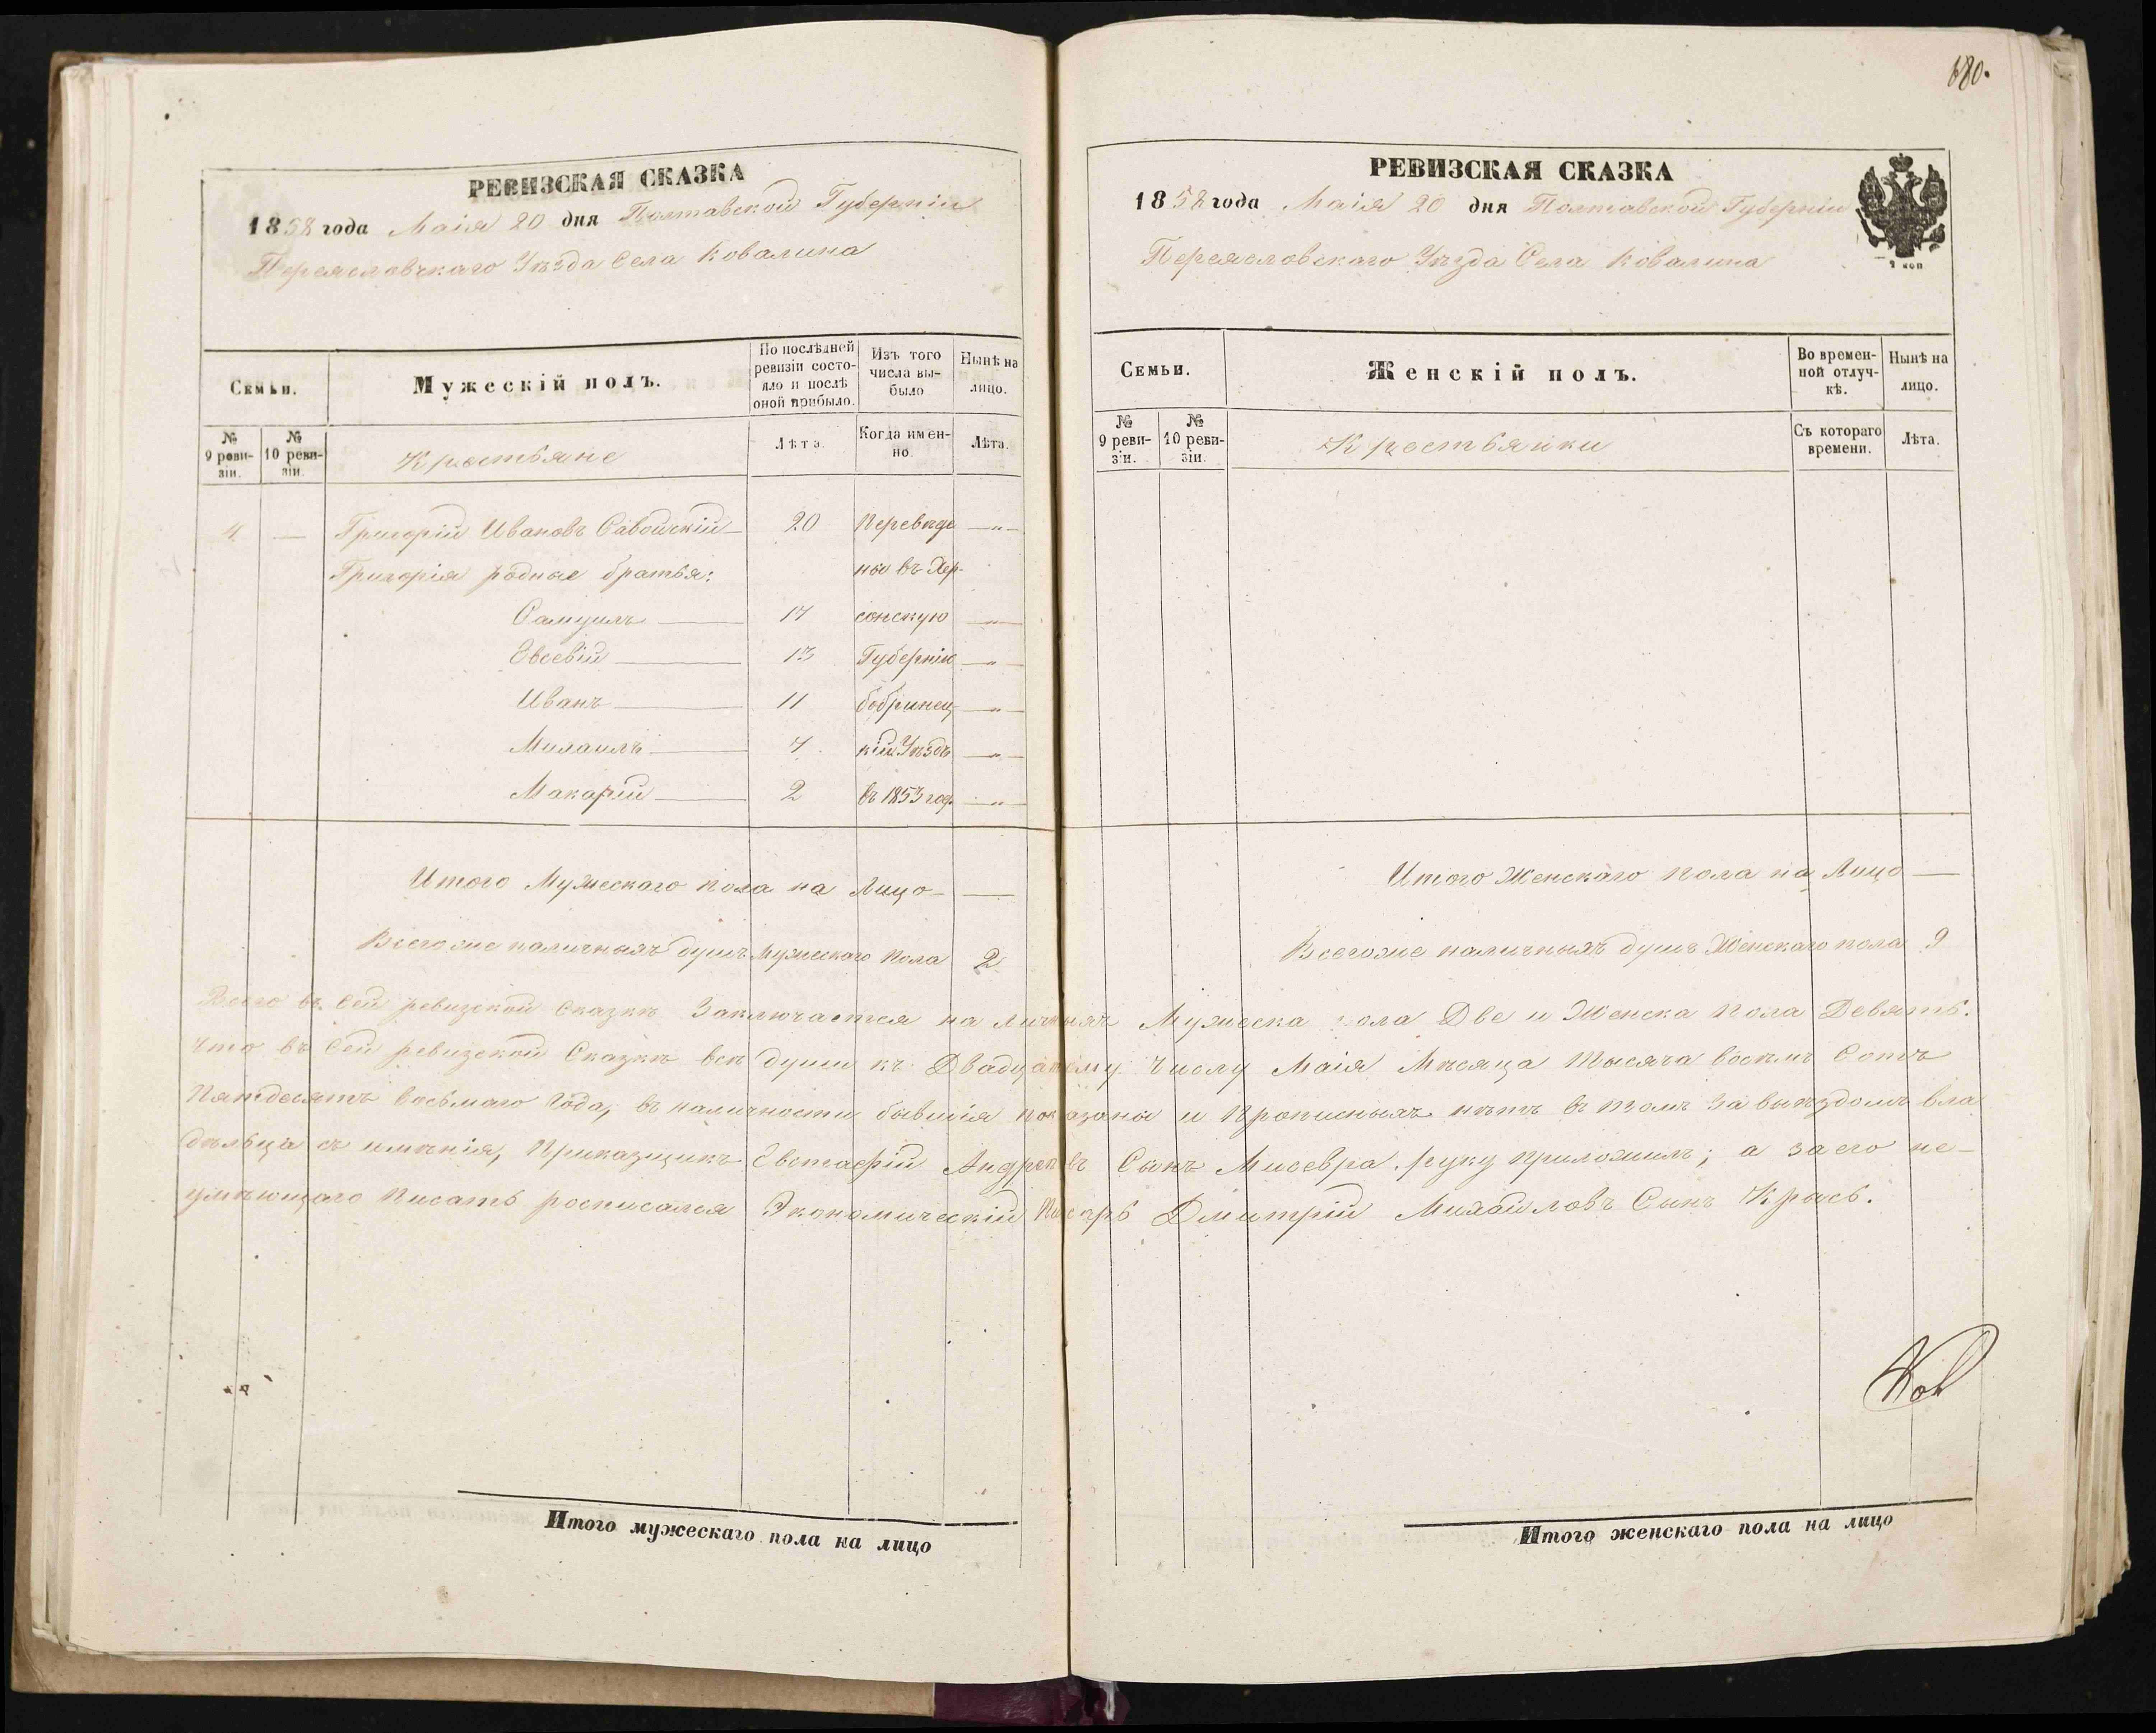 680.
РЕВИЗСКАЯ СКАЗКА
1858 года Маія 20 дня Полтавской Губерніи
Переясловскаго Уѣзда Села Ковалина
Семьи.
Мужескій полъ.
По послѣдней ревизіи состояло и послѣ оной прибыло.
Изъ того числа выбыло
Нынѣ на лицо.
№ 9 ревизіи.
№ 10 ревизіи.
Крестьяне
Лѣта.
Когда именно.
Лѣта.
4 — Григорій Ивановъ Савойскій — 20 Переведе —"—
Григорія родные братья: ны въ Хер-
Самуилъ — 17 сонскую —"—
Евсевій — 13 Губернію —"—
Иванъ — 11 бобринец- —"—
Михаилъ — 7 кій Уѣздъ —"—
Макарій — 2 въ 1853 год. —"—
Итого Мужескаго пола на Лицо — —
Всегоже наличныхъ душъ Мужескаго Пола 2
РЕВИЗСКАЯ СКАЗКА
1858 года Маія 20 дня Полтавской Губерніи
Переясловскаго Уѣзда Села Ковалина
2 коп
Семьи.
Женскій полъ.
Во временной отлучкѣ.
Нынѣ на лицо.
№ 9 ревизіи.
№ 10 ревизіи.
Крестьянки
Съ котораго времени.
Лѣта.
Итого Женскаго пола на Лицо —
Всегоже наличныхъ душъ Женскаго пола 9
Всего въ Сей ревизской Сказкѣ Заключается на личныхъ Мужеска пола Две и Женска Пола Девять.
Что въ Сей ревизской Сказкѣ всѣ души къ Двадцатому Числу Маія Мѣсяца Тысяча восемь Сотъ
Пятдесятъ восьмаго Года, въ наличности бывшія показаны и Прописныхъ нѣтъ въ томъ За выѣздомъ вла
дѣльца съ имѣнія, Прикащикъ Евстафій Андреевъ Сынъ Мисевра руку приложилъ; а за его не-
умѣющаго Писать росписался Экономическій Писарь Дмитрій Михайловъ Сынъ Крысь.
Итого мужескаго пола на лицо
Итого женскаго пола на лицо